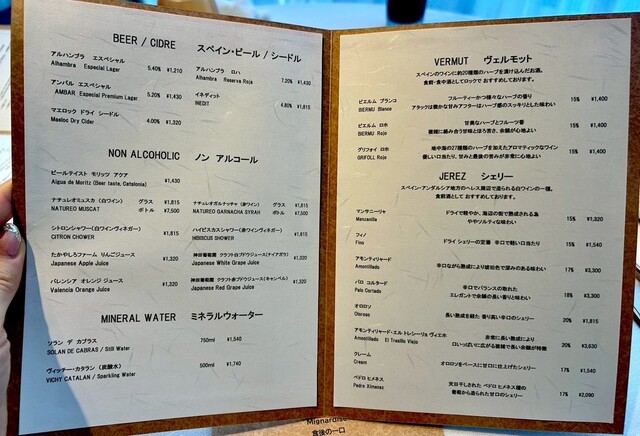 BEER / CIDRE スペイン・ビール / シードル
アルハンブラ エスペシャル
Alhambra Especial Lager 5.40% ¥1,210
アルハンブラ ロハ
Alhambra Reserva Roja 7.20% ¥1,430
アンバル エスペシャル
AMBAR Especial Premium Lager 5.20% ¥1,430
イネディット
INEDIT 4.80% ¥1,815
マエロック ドライ シードル
Maeloc Dry Cider 4.00% ¥1,320
NON ALCOHOLIC ノン アルコール
ビールテイスト モリッツ アクア
Aigua de Moritz (Beer taste, Catalonia) ¥1,430
ナチュレオミュスカ (白ワイン) グラス ¥1,815
NATUREO MUSCAT ボトル ¥7,500
ナチュレオガルナッチャ (赤ワイン) グラス ¥1,815
NATUREO GARNACHA SYRAH ボトル ¥7,500
シトロンシャワー (白ワインヴィネガー)
CITRON CHOWER ¥1,815
ハイビスカスシャワー (赤ワインヴィネガー)
HIBISCUS SHOWER ¥1,815
たかやしろファーム りんごジュース
Japanese Apple Juice ¥1,320
神田葡萄園 クラフト白ブドウジュース(ナイアガラ)
Japanese White Grape Juice ¥1,320
バレンシア オレンジ ジュース
Valencia Orange Juice ¥1,320
神田葡萄園 クラフト赤ブドウジュース(キャンベル)
Japanese Red Grape Juice ¥1,320
MINERAL WATER ミネラルウォーター
ソラン デ カブラス
SOLAN DE CABRAS / Still Water 750ml ¥1,540
ヴィッチー・カタラン (炭酸水)
VICHY CATALAN / Sparkling Water 500ml ¥1,740
VERMUT ヴェルモット
スペインのワインに約20種類のハーブを漬け込んだお酒。
食前・食中酒としてロックで おすすめしております。
ビエルム ブランコ
BERMU Blanco
フルーティーかつ様々なハーブの香り
アタックは微かな甘みアフターはハーブ感のスッキリとした味わい
15% ¥1,400
ビエルム ロホ
BERMU Rojo
甘美なハーブとフルーツ香
複雑に絡み合う甘味とほろ苦さ、余韻が心地よい
15% ¥1,400
グリフォイ ロホ
GRIFOLL Rojo
地中海の27種類のハーブを加えたアロマティックなワイン
優しい口当たり、甘みと最後の苦みが非常に心地よい
15% ¥1,400
JEREZ シェリー
スペイン・アンダルシア地方のヘレス周辺で造られる白ワインの一種。
食前酒として おすすめしております。
マンサニーリャ
Manzanilla
ドライで軽やか、海辺の街で熟成される為
ややソルティな味わい
15% ¥1,320
フィノ
Fino ドライ シェリーの定番 辛口で軽い口当たり 15% ¥1,540
アモンティリャード
Amontillado 辛口ながら熟成により琥珀色で深みのある味わい 17% ¥3,300
パロ コルタード
Palo Cortado
辛口でバランスの取れた
エレガントで余韻の長い香りと味わい
18% ¥3,300
オロロソ
Oloroso 長い熟成を経た 香り高い辛口のシェリー 20% ¥1,815
アモンティリャード・エル トレシーリョ ヴィエホ
Amontillado El Tresillo Viejo
非常に長い熟成により
口いっぱいに広がる複雑で長い余韻が特徴
20% ¥3,630
クレーム
Cream オロロソをベースに甘口に仕上げたシェリー 17% ¥1,540
ペドロ ヒメネス
Pedro Ximenez
天日干しされた ペドロ ヒメネス種の
葡萄から造られた甘口のシェリー
17% ¥2,090
Mignardise
食後の一口